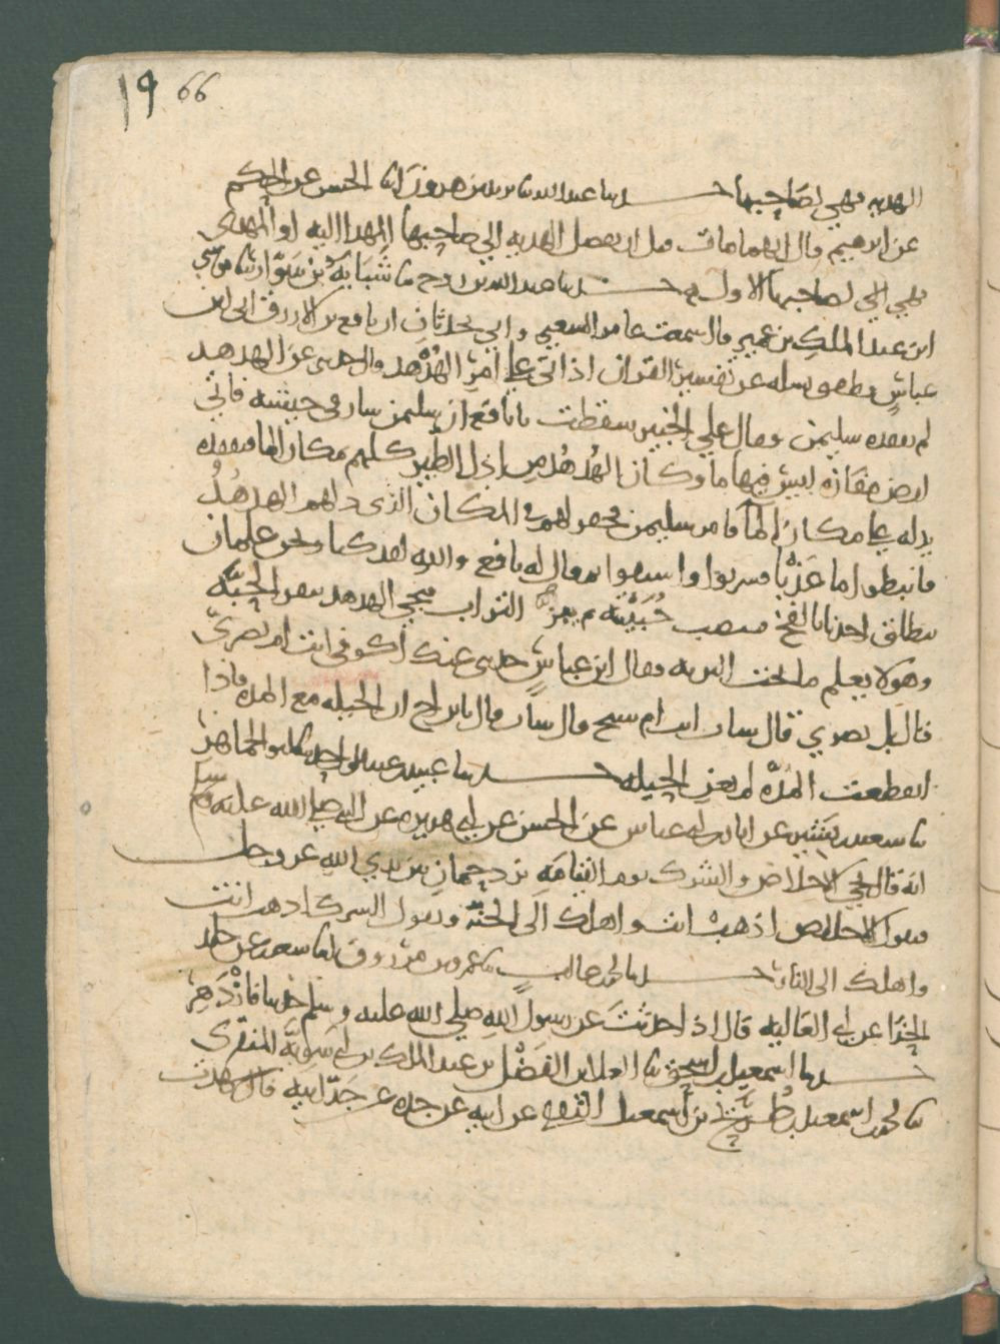 ١٩ 66
الهديه فهي لصاحبها حدثنا عبد الله نا يزيد بن هرون انا الحسن عن الحكم
عن ابرهيم قال ايهما مات قبل ان يصل الهديه الي صاحبها المهدا اليه او المهدي
فهي الي لصاحبها الاول حدثنا عبد الله بن روح نا شبابة بن سوار نا موسي
ابن عبد الملك بن عمير قال سمعت عامر الشعبي وابي يحدثان ان نافع بن الازرق اتى ابن
عباس فطفق يسله عن تفسير القران اذ اتى علي امر الهدهد قال حدثني عن الهدهد
لم تفقده سليمن فقال علي الخبير سقطت يا نافع ان سليمن سار في جيشه فاتي
ارض مفازه ليس فيها ما وكان الهدهد من اذل الطير كلهم بمكان الما ففقده
يدله علي مكان الما فامر سليمن فحفر لهم في المكان الذي دلهم الهدهد
فانبطوا ما عذبا فشربوا واستقوا فقال له نافع والله لقد كنا ونحن غلمان
ينطلق احدنا بالفخ فينصب حبيته ثم يعز التراب فيجي الهدهد ينقر الحبه
وهو لا يعلم ما تحت التربه فقال ابن عباس حدثني عنك اكوفي انت ام بصري
قال بل بصري قال شاب انت ام شيخ قال شاب قال يا بن اخ ان الحيله مع المده فاذا
انقطعت المده لم تغن الحيله حدثنا عبيد بن عبد الواحد نا ابو الجماهر
نا سعيد بن بشير عن ابان بن ابي عياش عن الحسن عن ابي هريره عن النبي صلي الله عليه وسلم
انه قال يجي الاخلاص والشرك يوم القيامه يزدحمان بين يدي الله عز وجل
فيقول للاخلاص اذهب انت واهلك الى الجنة ويقول للشرك اذهب انت
واهلك الى النار حدثنا محمد بن غالب نا عمرو بن مرزوق انا شعبة عن خلد
الحذا عن ابي العاليه قال اذا حدثت عن رسول الله صلي الله عليه وسلم حديثا فازدهر
حدثنا اسمعيل بن اسحق نا العلا بن الفضل بن عبد الملك بن ابي سوية المنقري
نا محمد بن اسمعيل بن طريح بن اسمعيل الثقفي عن ابيه عن جده عن جد ابيه قال شهدت